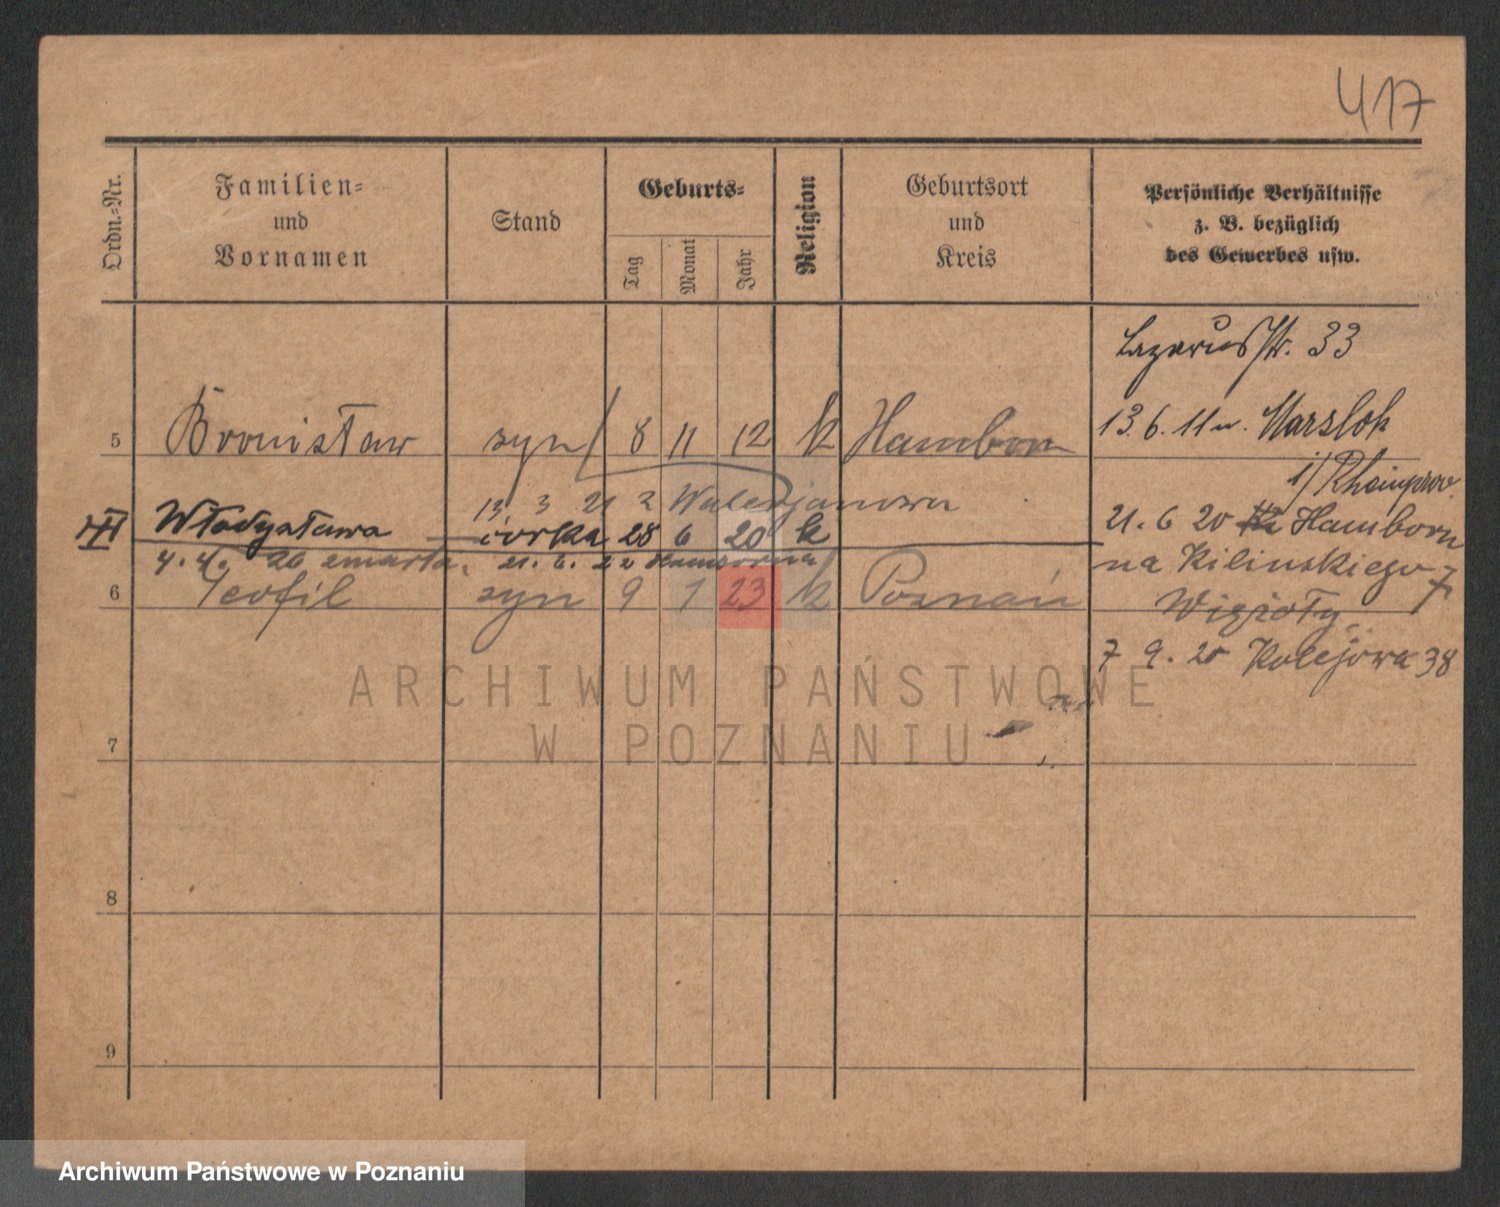 417
Ordn.-Nr.
Familien-
und
Vornamen
Stand
Geburts-
Tag
Monat
Jahr
Religion
Geburtsort
und
Kreis
Persönliche Verhältnisse
z. B. bezüglich
des Gewerbes usw.
Lazarusstr. 33
5 Bronisław syn 8 11 12 k Hamborn
13. 6. 11 n. Marsloh
i/ Rheinprov.
13 3 21 z Walerjanowa
III Władysława córka 28 6 20 k
21. 6 20 Hamborn
4. 4. 26 zmarła, 21. 6. 22 Hamborna
na Kilinskiego 7
6 Teofil syn 9 1 23 k Poznań
7 9. 20 Kolejowa 38
ARCHIWUM PAŃSTWOWE
W POZNANIU
7
8
9
Archiwum Państwowe w Poznaniu